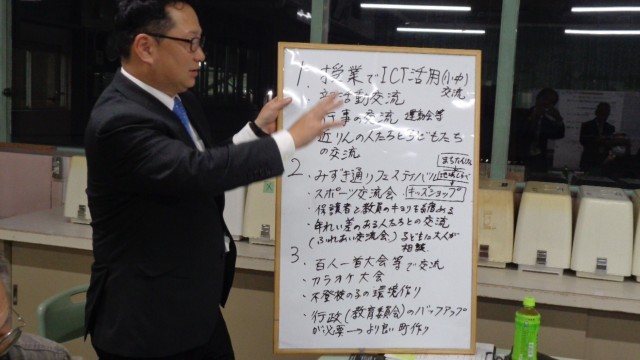 1. 授業でICT活用(小中)
交流
部活動交流
行事の交流 運動会等
近りんの人たちと子どもたち
の交流
まちたんけん
2. みすき通りフェスティバル
・スポーツ交流会 キッズショップ
・保護者と教員のキョリを
・年れい差のある人たちとの交流
(ふれあい交流会) 子どもが大人が
相談
3. 百人一首大会等で交流
・カラオケ大会
・不登校の子の環境作り
・行政(教育委員会)のバックアップ
が必要→より良い町作り